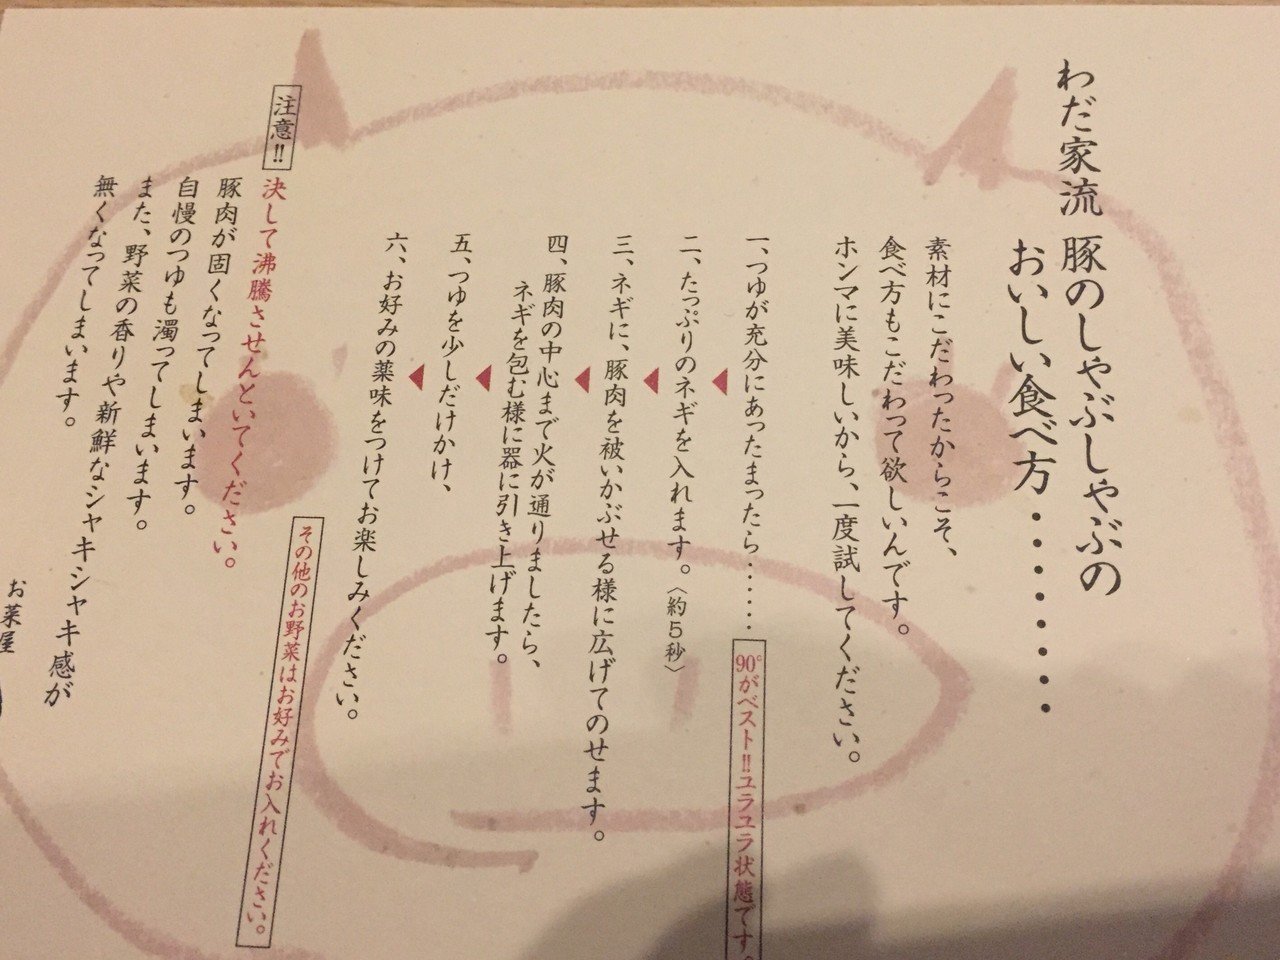 わだ家流 豚のしゃぶしゃぶの
おいしい食べ方・・・・・・・
素材にこだわったからこそ、
食べ方もこだわって欲しいんです。
ホンマに美味しいから、一度試してください。
一、つゆが充分にあったまったら・・・・・・
90°がベスト!!ユラユラ状態です。
二、たっぷりのネギを入れます。〈約5秒〉
三、ネギに、豚肉を被いかぶせる様に広げてのせます。
四、豚肉の中心まで火が通りましたら、
ネギを包む様に器に引き上げます。
五、つゆを少しだけかけ、
六、お好みの薬味をつけてお楽しみください。
その他のお野菜はお好みでお入れください。
注意!! 決して沸騰させんといてください。
豚肉が固くなってしまいます。
自慢のつゆも濁ってしまいます。
また、野菜の香りや新鮮なシャキシャキ感が
無くなってしまいます。
お菜屋